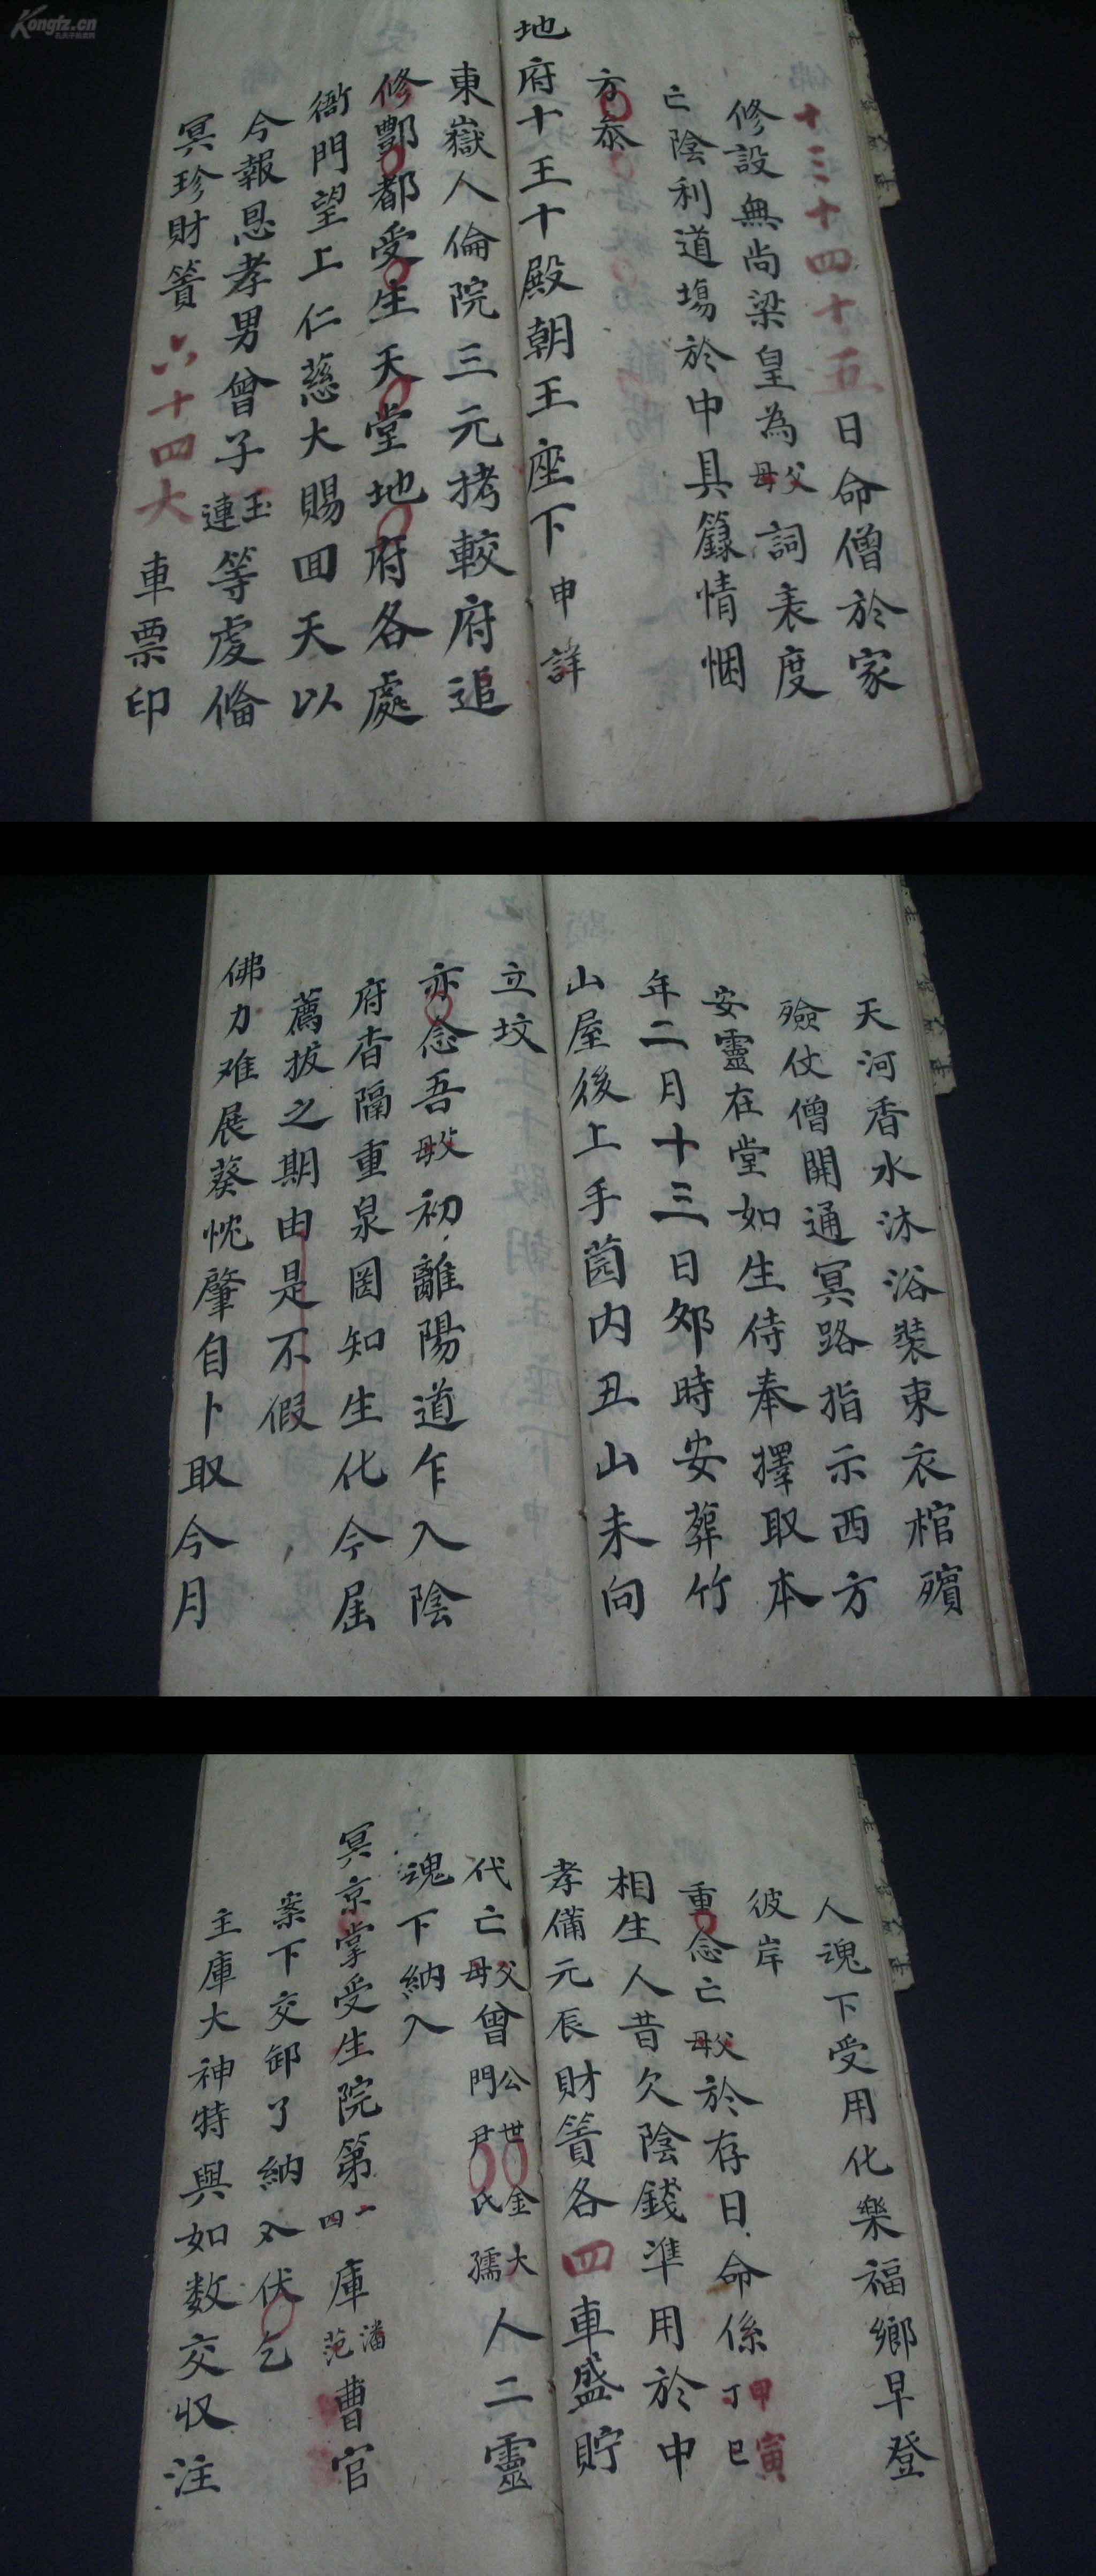 Kongfz.cn
孔夫子旧书网
十三十四十五日命僧於家
修設無尚梁皇為父母詞表度
亡陰利道場於中具籙情悃
方泰
地府十王十殿朝王座下申詳
東嶽人倫院三元拷較府追
修酆都受生天堂地府各處
衙門望上仁慈大賜回天以
今報恩孝男曾子玉連等虔俻
冥珍財簀六十四大車票印
天河香水沐浴裝束衣棺殯
殮仗僧開通冥路指示西方
安靈在堂如生侍奉擇取本
年二月十三日夘時安葬竹
山屋後上手茵内丑山未向
立坟
亦念吾父母初離陽道乍入陰
府杳隔重泉罔知生化今届
薦拔之期由是不假
佛力难展葵忱肇自卜取今月
人魂下受用化樂福鄉早登
彼岸
重念亡父母於存日命係甲寅丁巳
相生人昔欠陰錢準用於中
孝備元辰財簀各四車盛貯
代亡父母曾公門世尹金氏大孺人二靈
魂下納入
冥京掌受生院第一四庫潘范曹官
案下交卸了納入伏乞
主庫大神特與如数交收注